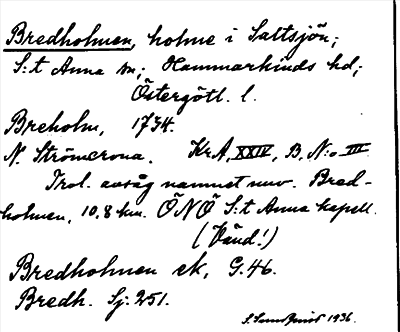 Bredholmen, holme i Saltsjön;
S:t Anna sn; Hammarkinds hd;
Östergötl. l.
Breholm, 1734.
N. Strömcrona. Kr.A, XXIV, B, N:o III.
Trol. avsåg namnet nuv. Bred-
holmen, 10,8 km. ÖNÖ S:t Anna kapell.
(Vänd!)
Bredholmen ek, G.46.
Bredh. Sj: 251.
1936.